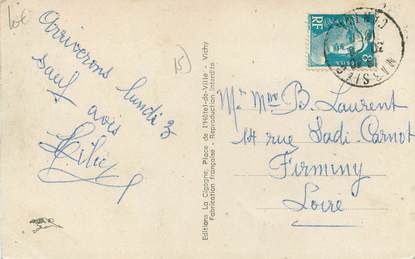 Lot
15
Arriverons lundi 3
sauf avis
Editions La Cigogne, Place de l'Hôtel-de-Ville - Vichy
Fabrication française - Reproduction interdite
RF
Mr Mme B. Laurent
14 rue Sadi-Carnot
Firminy
Loire